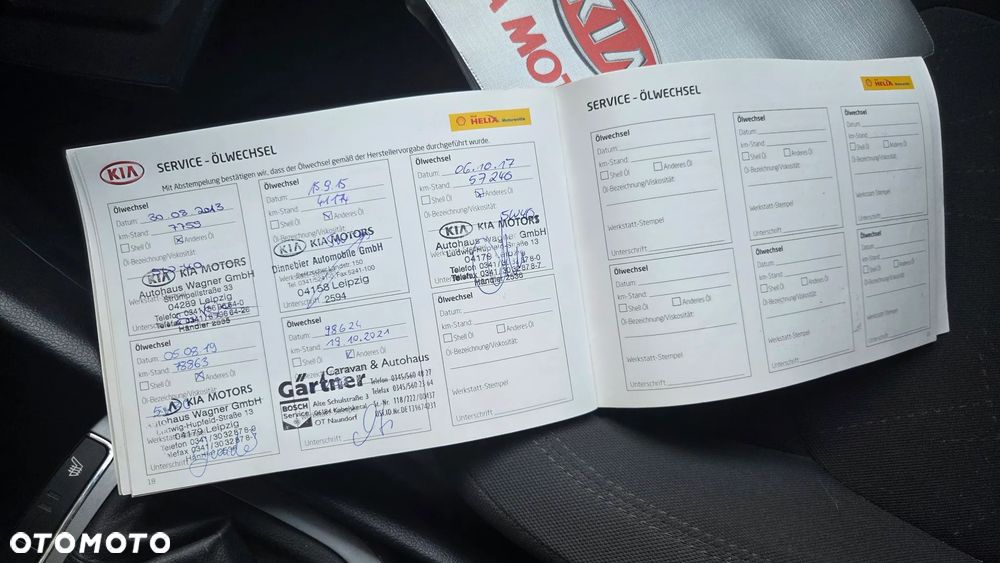 KIA
KIA MOT
KIA
SERVICE - ÖLWECHSEL
HELIX Motorenöle
Mit Abstempelung bestätigen wir, dass der Ölwechsel gemäß der Herstellervorgabe durchgeführt wurde.
Ölwechsel
Datum: 30 08 2013
km-Stand: 7759
Shell Öl Anderes Öl
KIA KIA MOTORS
Autohaus Wagner GmbH
Strümpellstraße 33
04289 Leipzig
Händler 2535
Ölwechsel
Datum: 15.9.15
km-Stand: 41174
Shell Öl Anderes Öl
KIA KIA MOTORS
Dinnebier Automobile GmbH
04158 Leipzig
2594
Ölwechsel
Datum: 06.10.17
km-Stand: 57240
Shell Öl Anderes Öl
Öl-Bezeichnung/Viskosität:
5W40
KIA KIA MOTORS
Autohaus Wagner GmbH
Ludwig-Hupfeld-Straße 13
04179 Leipzig
Telefon 0341/30 32 87 8-0
Telefax 0341/30 32 87 8-7
Händler 2535
Ölwechsel
Datum: 05.08.19
km-Stand: 78863
Shell Öl Anderes Öl
KIA MOTORS
Autohaus Wagner GmbH
Ludwig-Hupfeld-Straße 13
04179 Leipzig
Telefon 0341/30 32 87 8-0
Telefax 0341/30 32 87 8-7
Unterschrift
Ölwechsel
Datum: 98624
km-Stand: 19.10.2021
Shell Öl Anderes Öl
Caravan & Autohaus
Gärtner
BOSCH
Service
Alte Schulstraße 3
06184 Kabelsketal
OT Naundorf
Telefon 0345/560 48 27
Telefax 0345/560 23 64
St.-Nr. 118/222/00437
USt.ID Nr.DE139674231
Unterschrift
Ölwechsel
Datum:
km-Stand:
Shell Öl Anderes Öl
Öl-Bezeichnung/Viskosität:
Werkstatt-Stempel
Unterschrift
18
SERVICE - ÖLWECHSEL
HELIX Motorenöle
Ölwechsel
Datum:
km-Stand:
Shell Öl Anderes Öl
Öl-Bezeichnung/Viskosität:
Werkstatt-Stempel
Unterschrift
Ölwechsel
Datum:
km-Stand:
Shell Öl Anderes Öl
Öl-Bezeichnung/Viskosität:
Werkstatt-Stempel
Unterschrift
Ölwechsel
Datum:
km-Stand:
Shell Öl Anderes Öl
Öl-Bezeichnung/Viskosität:
Werkstatt-Stempel
Unterschrift
Ölwechsel
Datum:
km-Stand:
Shell Öl Anderes Öl
Öl-Bezeichnung/Viskosität:
Werkstatt-Stempel
Unterschrift
Ölwechsel
Datum:
km-Stand:
Shell Öl Anderes Öl
Öl-Bezeichnung/Viskosität:
Werkstatt-Stempel
Unterschrift
Ölwechsel
Datum:
km-Stand:
Shell Öl Anderes Öl
Öl-Bezeichnung/Viskosität:
Werkstatt-Stempel
Unterschrift
OTOMOTO